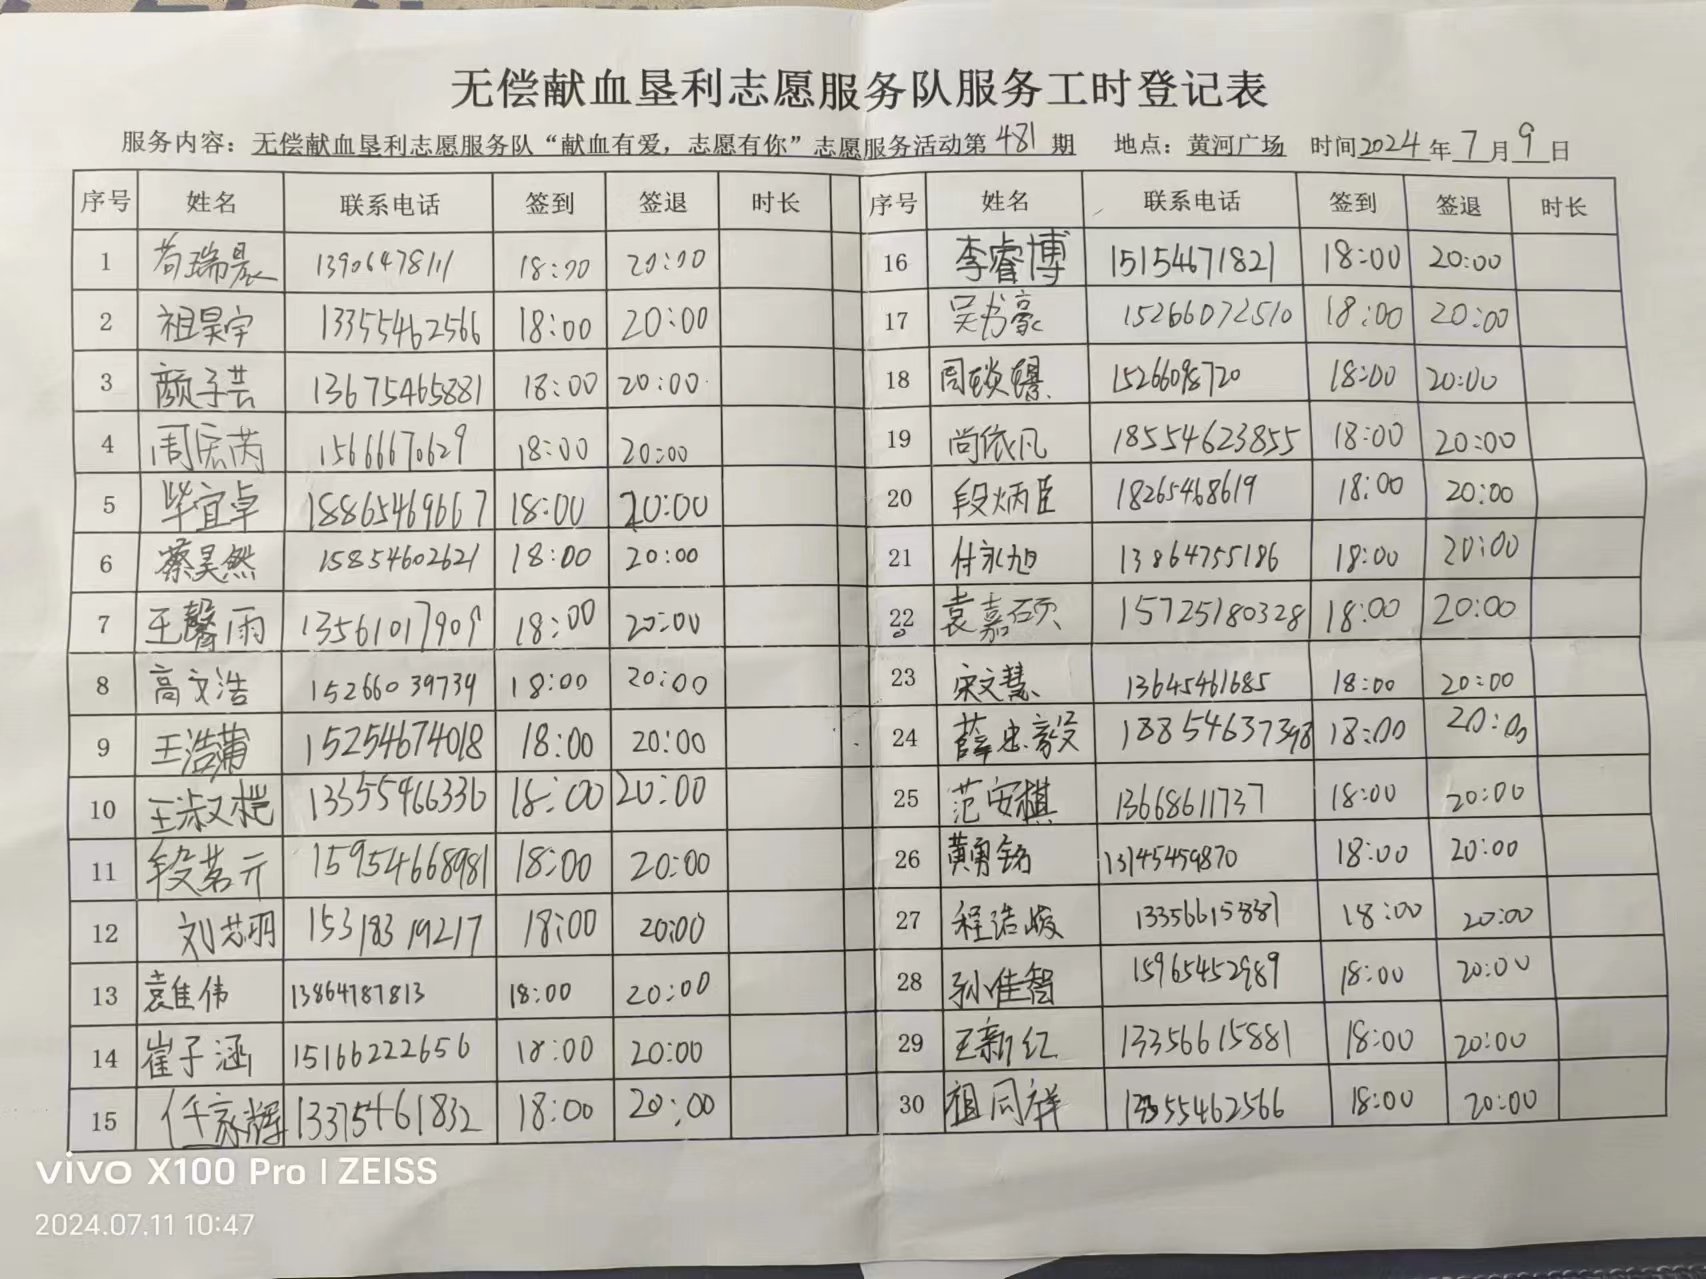 无偿献血垦利志愿服务队服务工时登记表
服务内容：无偿献血垦利志愿服务队“献血有爱，志愿有你”志愿服务活动第 481 期 地点：黄河广场 时间2024年7月9日
序号 姓名 联系电话 签到 签退 时长 序号 姓名 联系电话 签到 签退 时长
1 苟瑞晨 13906478111 18:00 20:00 16 李睿博 15154671821 18:00 20:00
2 祖昊宇 13355462566 18:00 20:00 17 吴书豪 15266072510 18:00 20:00
3 颜子芸 13675465881 18:00 20:00 18 周 15266098720 18:00 20:00
4 周宏芮 15666670629 18:00 20:00 19 尚依凡 18554623855 18:00 20:00
5 毕宜卓 18865469667 18:00 20:00 20 段炳臣 18265468619 18:00 20:00
6 蔡昊然 15854602621 18:00 20:00 21 付永旭 13864755186 18:00 20:00
7 王馨雨 13561017909 18:00 20:00 22 袁嘉硕 15725180328 18:00 20:00
8 高文浩 15266039739 18:00 20:00 23 宋文慧 13645461685 18:00 20:00
9 王浩蒲 15254674018 18:00 20:00 24 薛忠毅 18854637398 18:00 20:00
10 王淑桤 13355466336 18:00 20:00 25 范安棋 13668611737 18:00 20:00
11 段茗元 15954668981 18:00 20:00 26 黄勇铭 13145459870 18:00 20:00
12 刘芸羽 15318319217 18:00 20:00 27 程浩峻 13356615881 18:00 20:00
13 袁佳伟 13864787813 18:00 20:00 28 孙佳智 15965452989 18:00 20:00
14 崔子涵 15166222656 18:00 20:00 29 王新红 13356615881 18:00 20:00
15 任家辉 13375461832 18:00 20:00 30 祖同祥 13355462566 18:00 20:00
vivo X100 Pro | ZEISS
2024.07.11 10:47